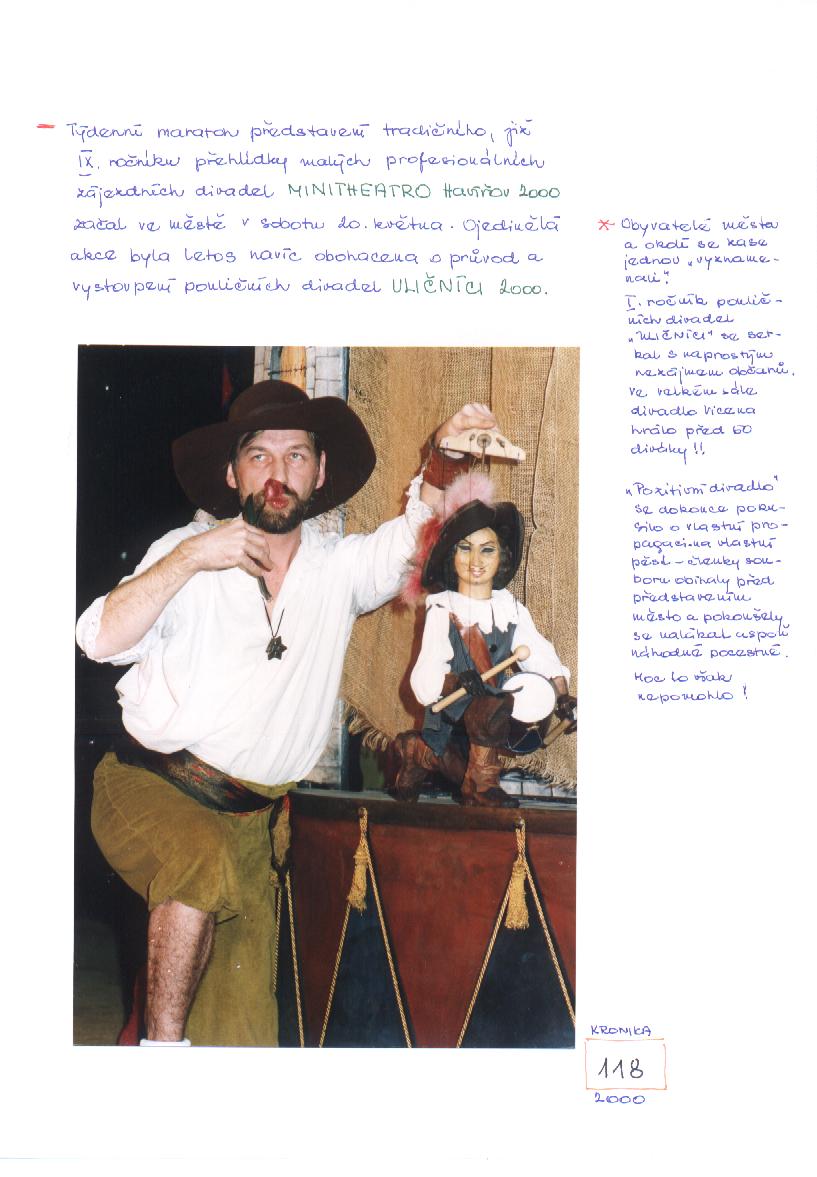 – Týdenní maraton představení tradičního, již
IX. ročníku přehlídky malých profesionálních
zájezdních divadel MINITHEATRO Havířov 2000
začal ve městě v sobotu 20. května. Ojedinělá
akce byla letos navíc obohacena o průvod a
vystoupení pouličních divadel ULIČNÍCI 2000.
* Obyvatelé města
a okolí se zase
jednou „vyzname-
nali".
I. ročník poulič-
ních divadel
„ULIČNÍCI" se set-
kal s naprostým
nezájmem občanů.
Ve velkém sále
divadlo Vicena
hrálo před 60
diváky !!
„Pozitivní divadlo"
se dokonce poku-
silo o vlastní pro-
pagaci na vlastní
pěst – členky sou-
boru obíhaly před
představením
město a pokoušely
se nalákat aspoň
náhodné pocestné.
Moc to však
nepomohlo !
KRONIKA
118
2000